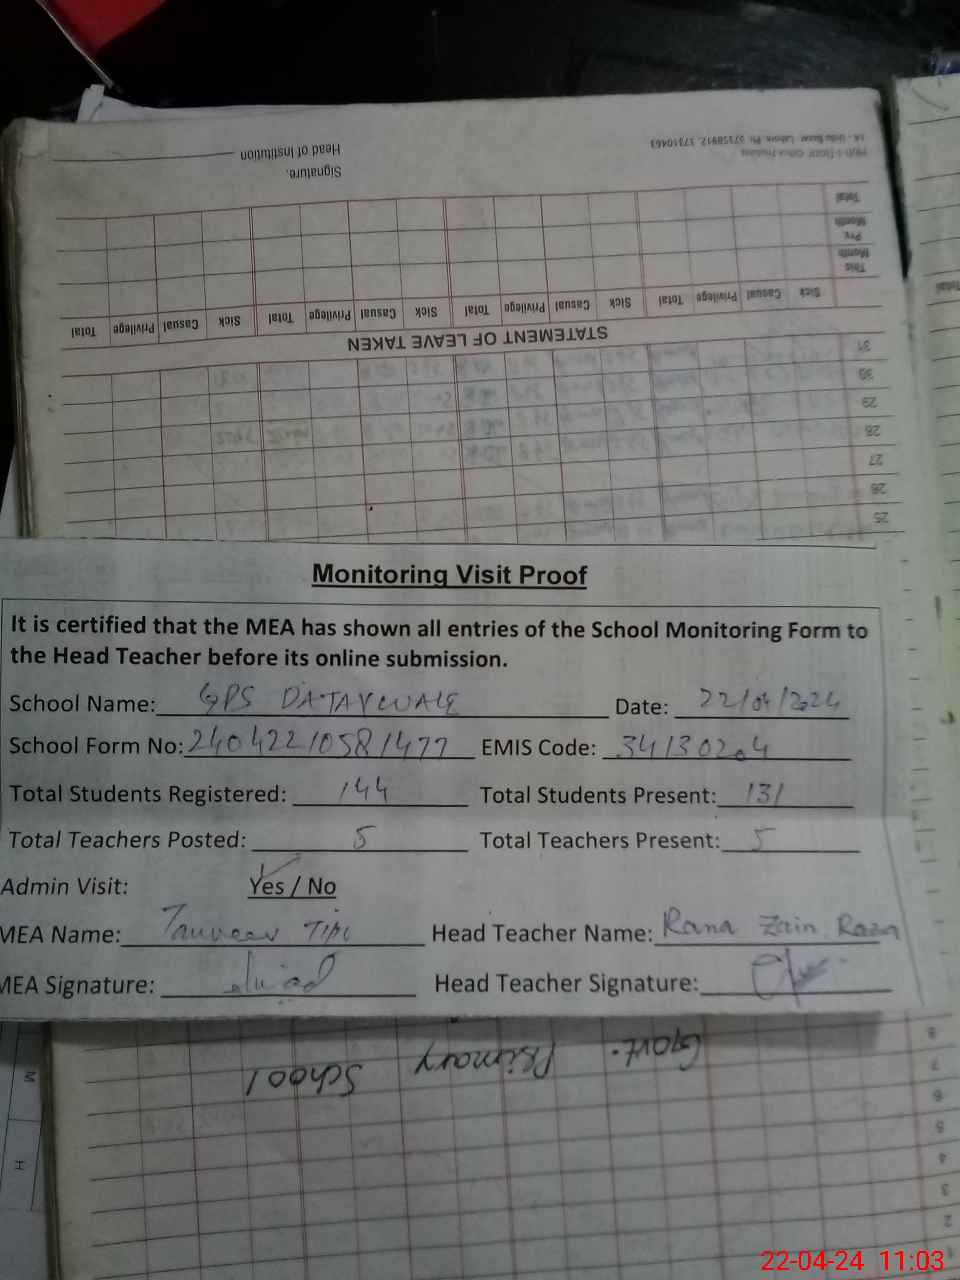 Head of Institution
Signature.
1A - Urdu Bazar Lahore. Ph: 37358912, 37310463
Total
Month
Pre
Month
This
Sick Casual Privilege Total Sick Casual Privilege Total Sick Casual Privilege Total Sick Casual Privilege Total
STATEMENT OF LEAVE TAKEN
31
30
29
28
27
26
25
Monitoring Visit Proof
It is certified that the MEA has shown all entries of the School Monitoring Form to
the Head Teacher before its online submission.
School Name: GPS Date: 22/04/2024
School Form No: 24042210581477 EMIS Code: 34130204
Total Students Registered: 144 Total Students Present: 131
Total Teachers Posted: 5 Total Teachers Present: 5
Admin Visit: Yes / No
MEA Name: Tanveer Tipu Head Teacher Name: Rana Zain Raza
MEA Signature: Head Teacher Signature:
Govt. Primary School
8
7
6
5
4
3
2
22-04-24 11:03